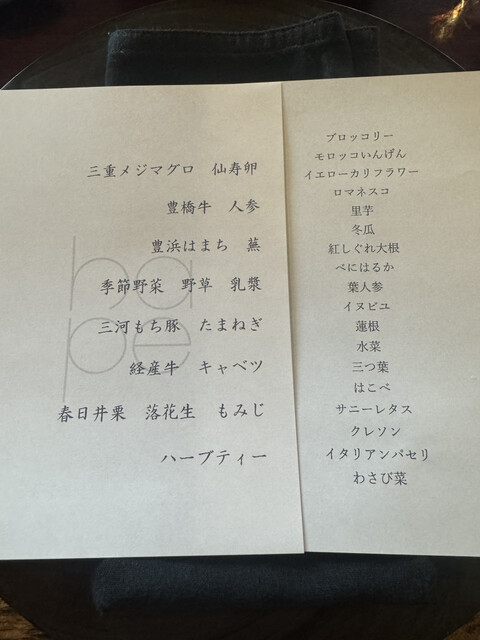 三重メジマグロ 仙寿卵
豊橋牛 人参
豊浜はまち 蕪
季節野菜 野草 乳漿
三河もち豚 たまねぎ
経産牛 キャベツ
春日井栗 落花生 もみじ
ハーブティー
hape
ブロッコリー
モロッコいんげん
イエローカリフラワー
ロマネスコ
里芋
冬瓜
紅しぐれ大根
べにはるか
葉人参
イヌビユ
蓮根
水菜
三つ葉
はこべ
サニーレタス
クレソン
イタリアンパセリ
わさび菜